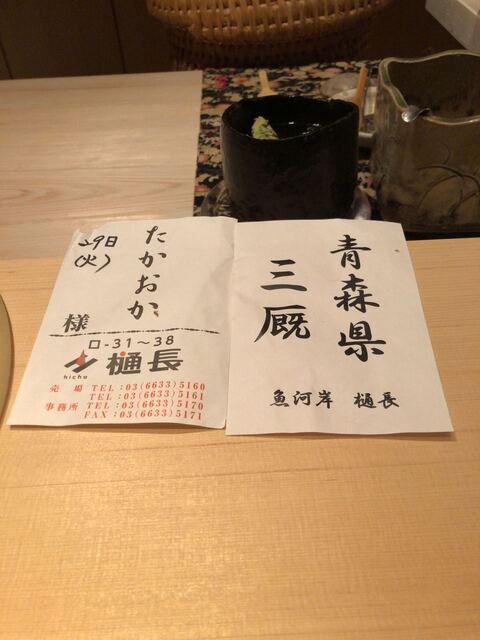 29日
(火)
たかおか
様
ロ-31～38
hicho
樋長
売場 TEL:03(6633)5160
TEL:03(6633)5161
事務所 TEL:03(6633)5170
FAX:03(6633)5171
青森県
三厩
魚河岸 樋長